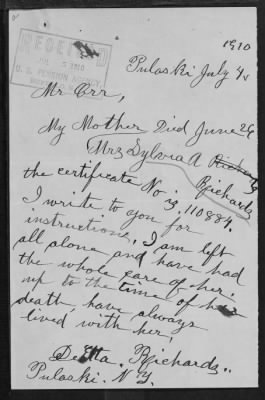 RECEIVED
JUL 5 1910
U. S. PENSION AGENCY
1910
Pulaski July 4,
Mr Orr,
My Mother Died June 26
Mrs Sylvia A Richards
Richards
the certificate No is 110884.
I write to you for
instructions, I am left
all alone and have had
the whole care of her.
up to the time of her
death, have always
lived with her,
Richards.
Pulaski. N.Y.